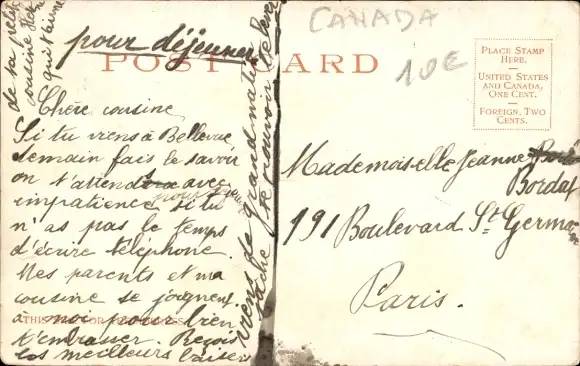 CANADA
10€
POST CARD
PLACE STAMP
HERE.
UNITED STATES
AND CANADA,
ONE CENT.
FOREIGN, TWO
CENTS.
Chère cousine
Si tu viens à Bellevue
demain fais le savoir
on t'attendra avec
impatience si tu
n'as pas le temps
d'écrire téléphone.
Mes parents et ma
cousine se joignent
à moi pour bien
t'embrasser. Reçois
les meilleurs baisers
de ta petite
cousine
qui t'aime
viens de grand matin
tâche
pour déjeuner
Mademoiselle Jeanne
Bordat
191 Boulevard St Germain
Paris.